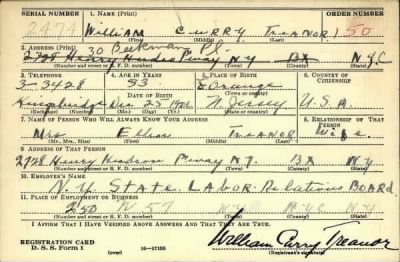 SERIAL NUMBER 1. NAME (Print) ORDER NUMBER
2474 WILLIAM CURRY TREANOR 150
(First) (Middle) (Last)
2. ADDRESS (Print) 30 Beekman Pl.
2728 Henry Hudson Pkway N.Y. BX N.Y.C
(Number and street or R. F. D. number) (Town) (County) (State)
3. TELEPHONE 4. AGE IN YEARS 5. PLACE OF BIRTH 6. COUNTRY OF CITIZENSHIP
3-3428 E. Orange
Kingsbridge DATE OF BIRTH
Dec 25 N. Jersey U.S.A.
(Exchange) (Number) (Mo.) (Day) (Yr.) (State or country)
7. NAME OF PERSON WHO WILL ALWAYS KNOW YOUR ADDRESS 8. RELATIONSHIP OF THAT PERSON
Mrs Ellen TREANOR Wife
(Mr., Mrs., Miss) (First) (Middle) (Last)
9. ADDRESS OF THAT PERSON
2728 Henry Hudson Pkway N.Y. BX N.Y
(Number and street or R. F. D. number) (Town) (County) (State)
10. EMPLOYER'S NAME
N.Y. STATE LABOR Relations BOARD
11. PLACE OF EMPLOYMENT OR BUSINESS
250 W 57 N.Y.C N.Y
(Number and street or R. F. D. number) (Town) (County) (State)
I AFFIRM THAT I HAVE VERIFIED ABOVE ANSWERS AND THAT THEY ARE TRUE.
REGISTRATION CARD
D. S. S. Form 1 (over) 16—17105 William Curry Treanor
(Registrant's signature)